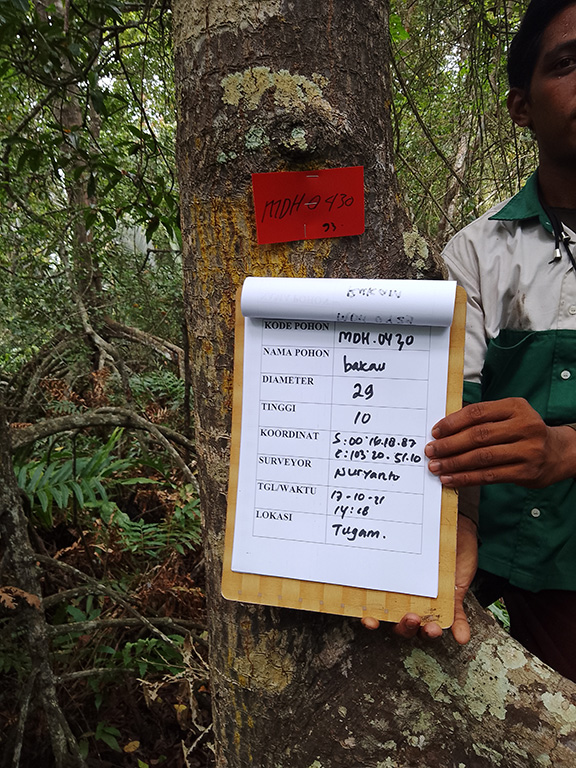 MDH-0430
KODE POHON MDH.0430
NAMA POHON bakau
DIAMETER 29
TINGGI 10
KOORDINAT S:00°16.18.87
E:103°20-51.10
SURVEYOR Nuryanto
TGL/WAKTU 17-10-21
14:18
LOKASI Tugam.